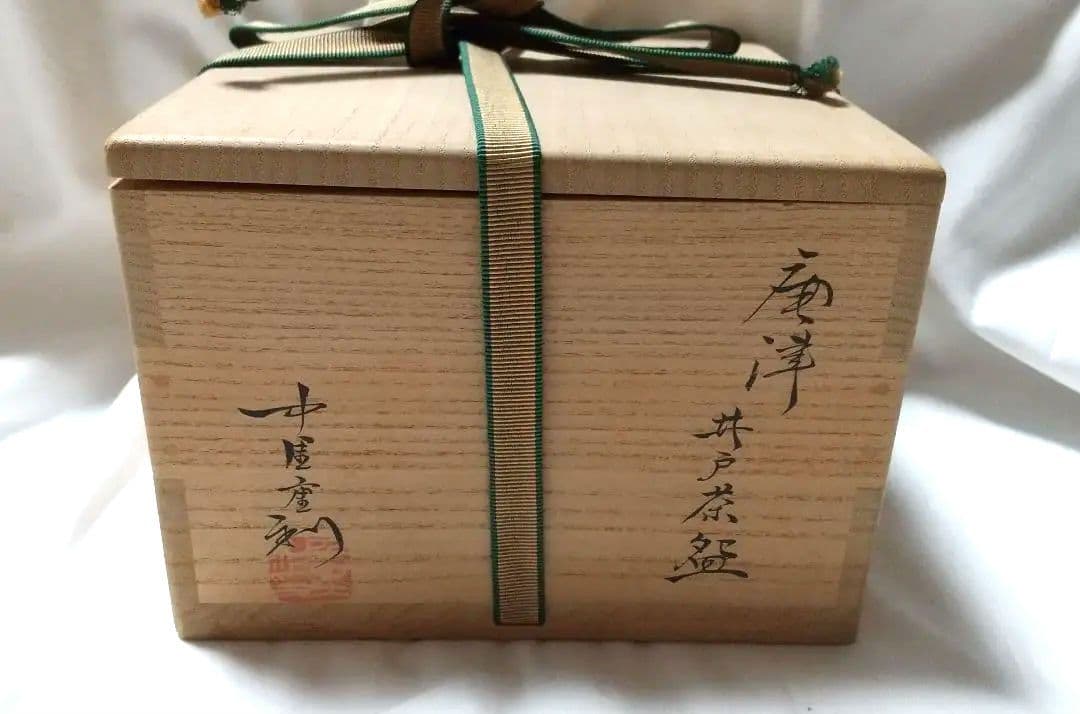 唐津井戸茶盌
中里重利